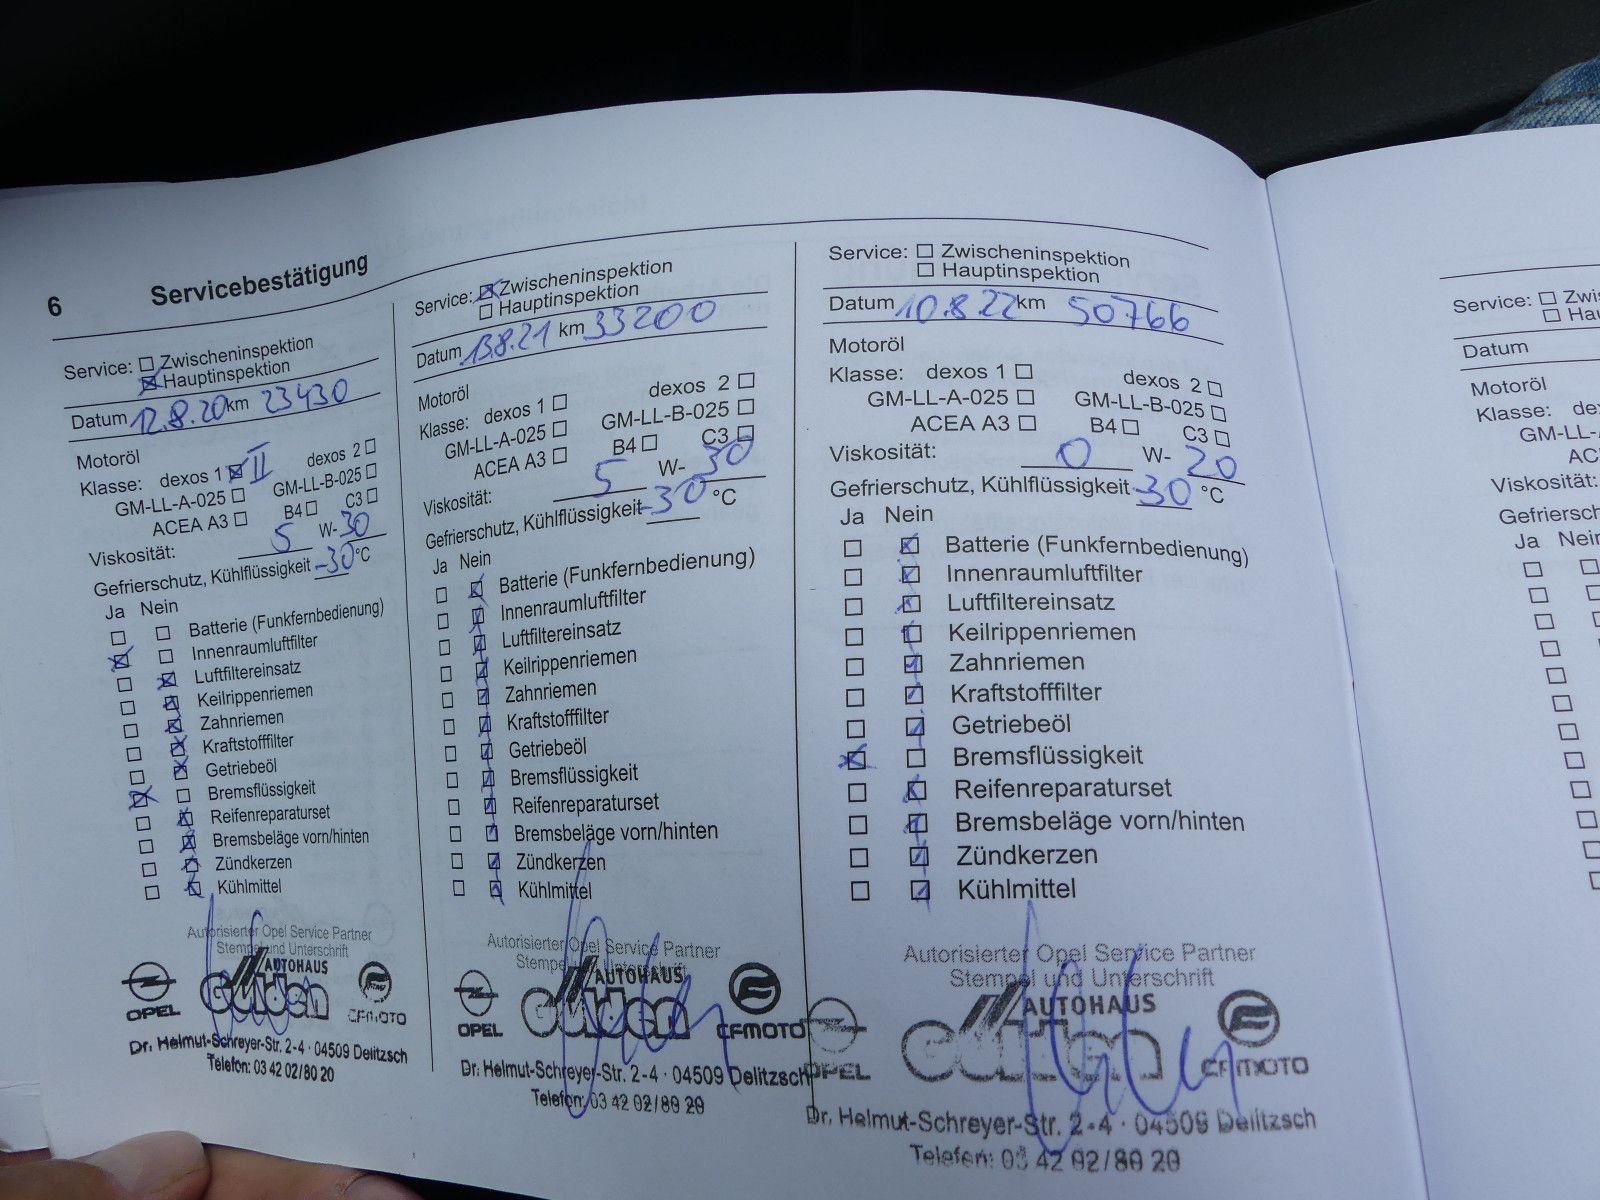 6 Servicebestätigung
Service: Zwischeninspektion
Hauptinspektion
Datum 12.8.20 km 23430
Motoröl
Klasse: dexos 1 II dexos 2
GM-LL-A-025 GM-LL-B-025
ACEA A3 B4 C3
Viskosität: 5 W-30
Gefrierschutz, Kühlflüssigkeit -30 °C
Ja Nein
Batterie (Funkfernbedienung)
Innenraumluftfilter
Luftfiltereinsatz
Keilrippenriemen
Zahnriemen
Kraftstofffilter
Getriebeöl
Bremsflüssigkeit
Reifenreparaturset
Bremsbeläge vorn/hinten
Zündkerzen
Kühlmittel
Autorisierter Opel Service Partner
Stempel und Unterschrift
OPEL AUTOHAUS Gülden CFMOTO
Dr. Helmut-Schreyer-Str. 2-4 · 04509 Delitzsch
Telefon: 03 42 02/80 20
Service: Zwischeninspektion
Hauptinspektion
Datum 13.8.21 km 33200
Motoröl
Klasse: dexos 1 dexos 2
GM-LL-A-025 GM-LL-B-025
ACEA A3 B4 C3
Viskosität: 5 W-30
Gefrierschutz, Kühlflüssigkeit -30 °C
Ja Nein
Batterie (Funkfernbedienung)
Innenraumluftfilter
Luftfiltereinsatz
Keilrippenriemen
Zahnriemen
Kraftstofffilter
Getriebeöl
Bremsflüssigkeit
Reifenreparaturset
Bremsbeläge vorn/hinten
Zündkerzen
Kühlmittel
Autorisierter Opel Service Partner
Stempel und Unterschrift
OPEL AUTOHAUS Gülden CFMOTO
Dr. Helmut-Schreyer-Str. 2-4 · 04509 Delitzsch
Telefon: 03 42 02/80 20
Service: Zwischeninspektion
Hauptinspektion
Datum 10.8.22 km 50766
Motoröl
Klasse: dexos 1 dexos 2
GM-LL-A-025 GM-LL-B-025
ACEA A3 B4 C3
Viskosität: 0 W-20
Gefrierschutz, Kühlflüssigkeit -30 °C
Ja Nein
Batterie (Funkfernbedienung)
Innenraumluftfilter
Luftfiltereinsatz
Keilrippenriemen
Zahnriemen
Kraftstofffilter
Getriebeöl
Bremsflüssigkeit
Reifenreparaturset
Bremsbeläge vorn/hinten
Zündkerzen
Kühlmittel
Autorisierter Opel Service Partner
Stempel und Unterschrift
OPEL AUTOHAUS Gülden CFMOTO
Dr. Helmut-Schreyer-Str. 2-4 · 04509 Delitzsch
Telefon: 03 42 02/80 20
Service: Zwi
Hau
Datum
Motoröl
Klasse: de
GM-LL-
AC
Viskosität:
Gefriersch
Ja Nein